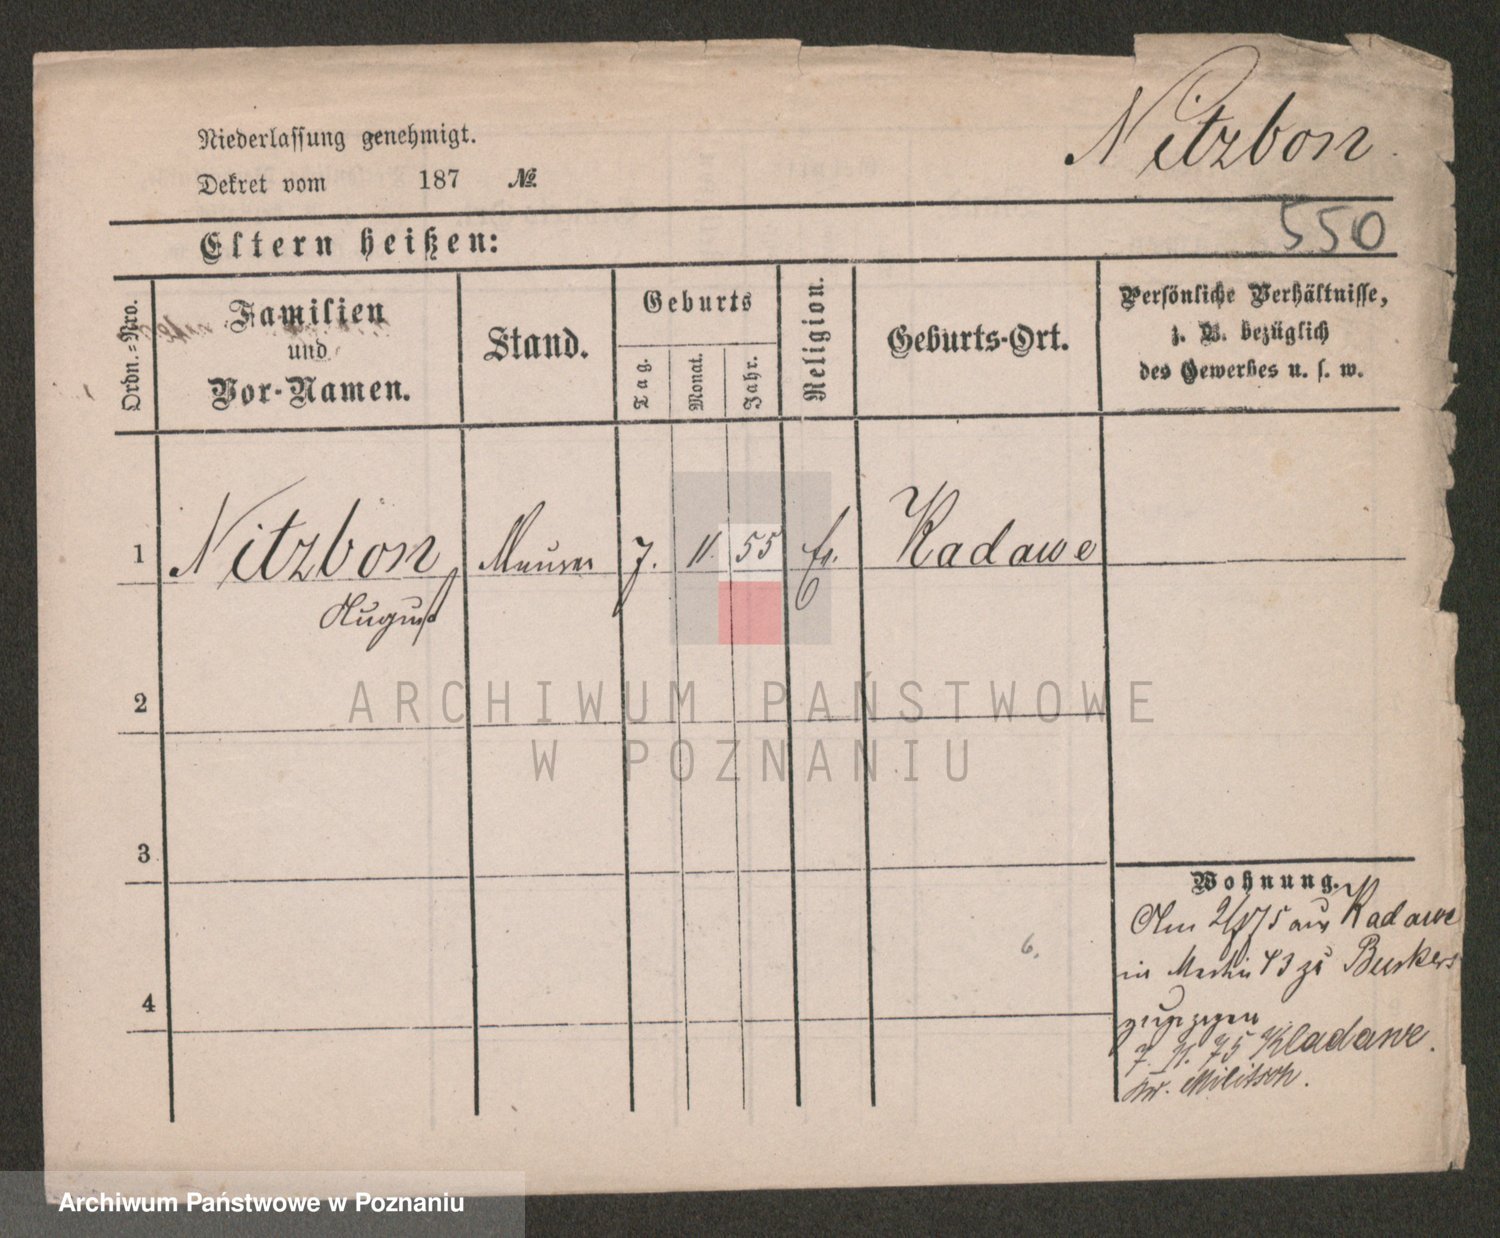 Nitzbon
Niederlassung genehmigt.
Dekret vom 187 №
550
Eltern heißen:
Ordn.-Nro.
Familien
und
Vor-Namen.
Stand.
Geburts
Tag.
Monat.
Jahr.
Religion.
Geburts-Ort.
Persönliche Verhältnisse,
z. B. bezüglich
des Gewerbes u. s. w.
1 Nitzbon Maurer 7. 11. 55 Kadawe
August
2
3
4
6.
Wohnung.
Am 75 aus Kadawe
in 43 zu
zugezogen
7. 11. 75 Kladawe.
Kr. Militsch.
ARCHIWUM PAŃSTWOWE
W POZNANIU
Archiwum Państwowe w Poznaniu